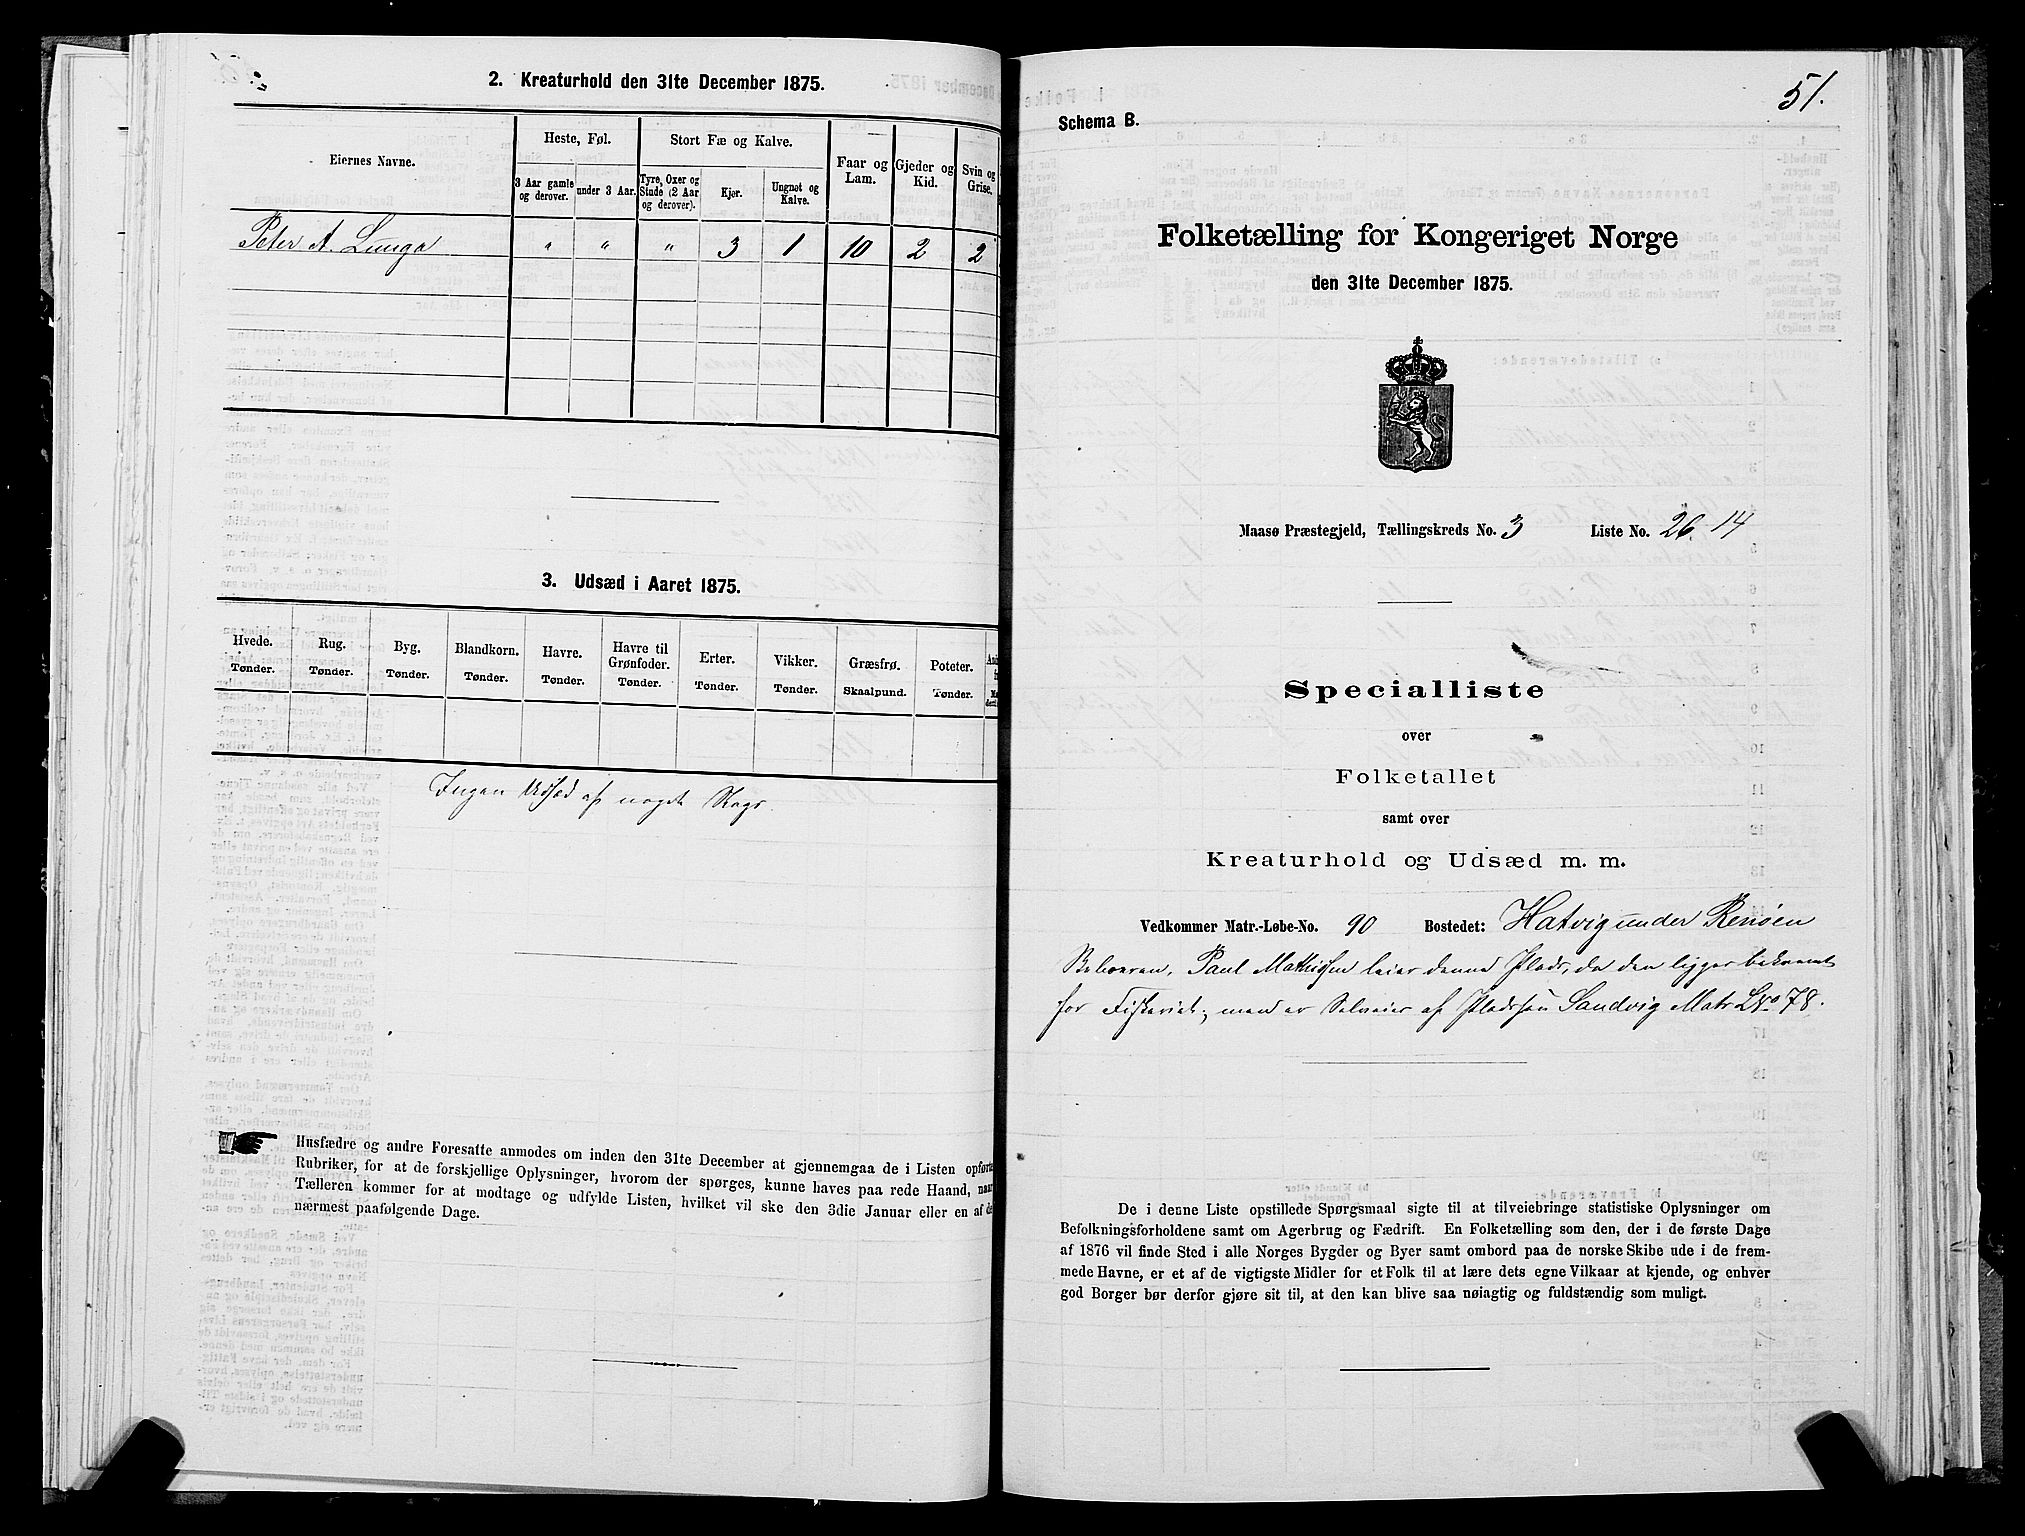 2. Kreaturhold den 31te December 1875.
Eiernes Navne.
Heste, Føl.
Stort Fæ og Kalve.
3 Aar gamle og derover.
under 3 Aar.
Tyre, Oxer og Stude (2 Aar og derover).
Kjør.
Ungnøt og Kalve.
Faar og Lam.
Gjeder og Kid.
Svin og Grise.
Peter A. " " " 3 1 10 2 2
3. Udsæd i Aaret 1875.
Hvede. Rug. Byg. Blandkorn. Havre. Havre til Grønfoder. Erter. Vikker. Græsfrø. Poteter.
Tønder. Tønder. Tønder. Tønder. Tønder. Tønder. Tønder. Tønder. Skaalpund. Tønder.
Ingen Udsæd af noget Slags.
Husfædre og andre Foresatte anmodes om inden den 31te December at gjennemgaa de i Listen opførte
Rubriker, for at de forskjellige Oplysninger, hvorom der spørges, kunne haves paa rede Haand, naar
Tælleren kommer for at modtage og udfylde Listen, hvilket vil ske den 3die Januar eller en af de
nærmest paafølgende Dage.
51.
Schema B.
Folketælling for Kongeriget Norge
den 31te December 1875.
Maasø Præstegjeld, Tællingskreds No. 3 Liste No. 26. 14
Specialliste
over
Folketallet
samt over
Kreaturhold og Udsæd m. m.
Vedkommer Matr.-Løbe-No. 90 Bostedet: Hatvig under Renøen
Beboeren, Paul Mathisen leier denne Plads, da den ligger bekvemt
for Fiskeriet; men er Selveier af Pladsen Sandvig Matr LNo 78.
De i denne Liste opstillede Spørgsmaal sigte til at tilveiebringe statistiske Oplysninger om
Befolkningsforholdene samt om Agerbrug og Fædrift. En Folketælling som den, der i de første Dage
af 1876 vil finde Sted i alle Norges Bygder og Byer samt ombord paa de norske Skibe ude i de frem-
mede Havne, er et af de vigtigste Midler for et Folk til at lære dets egne Vilkaar at kjende, og enhver
god Borger bør derfor gjøre sit til, at den kan blive saa nøiagtig og fuldstændig som muligt.